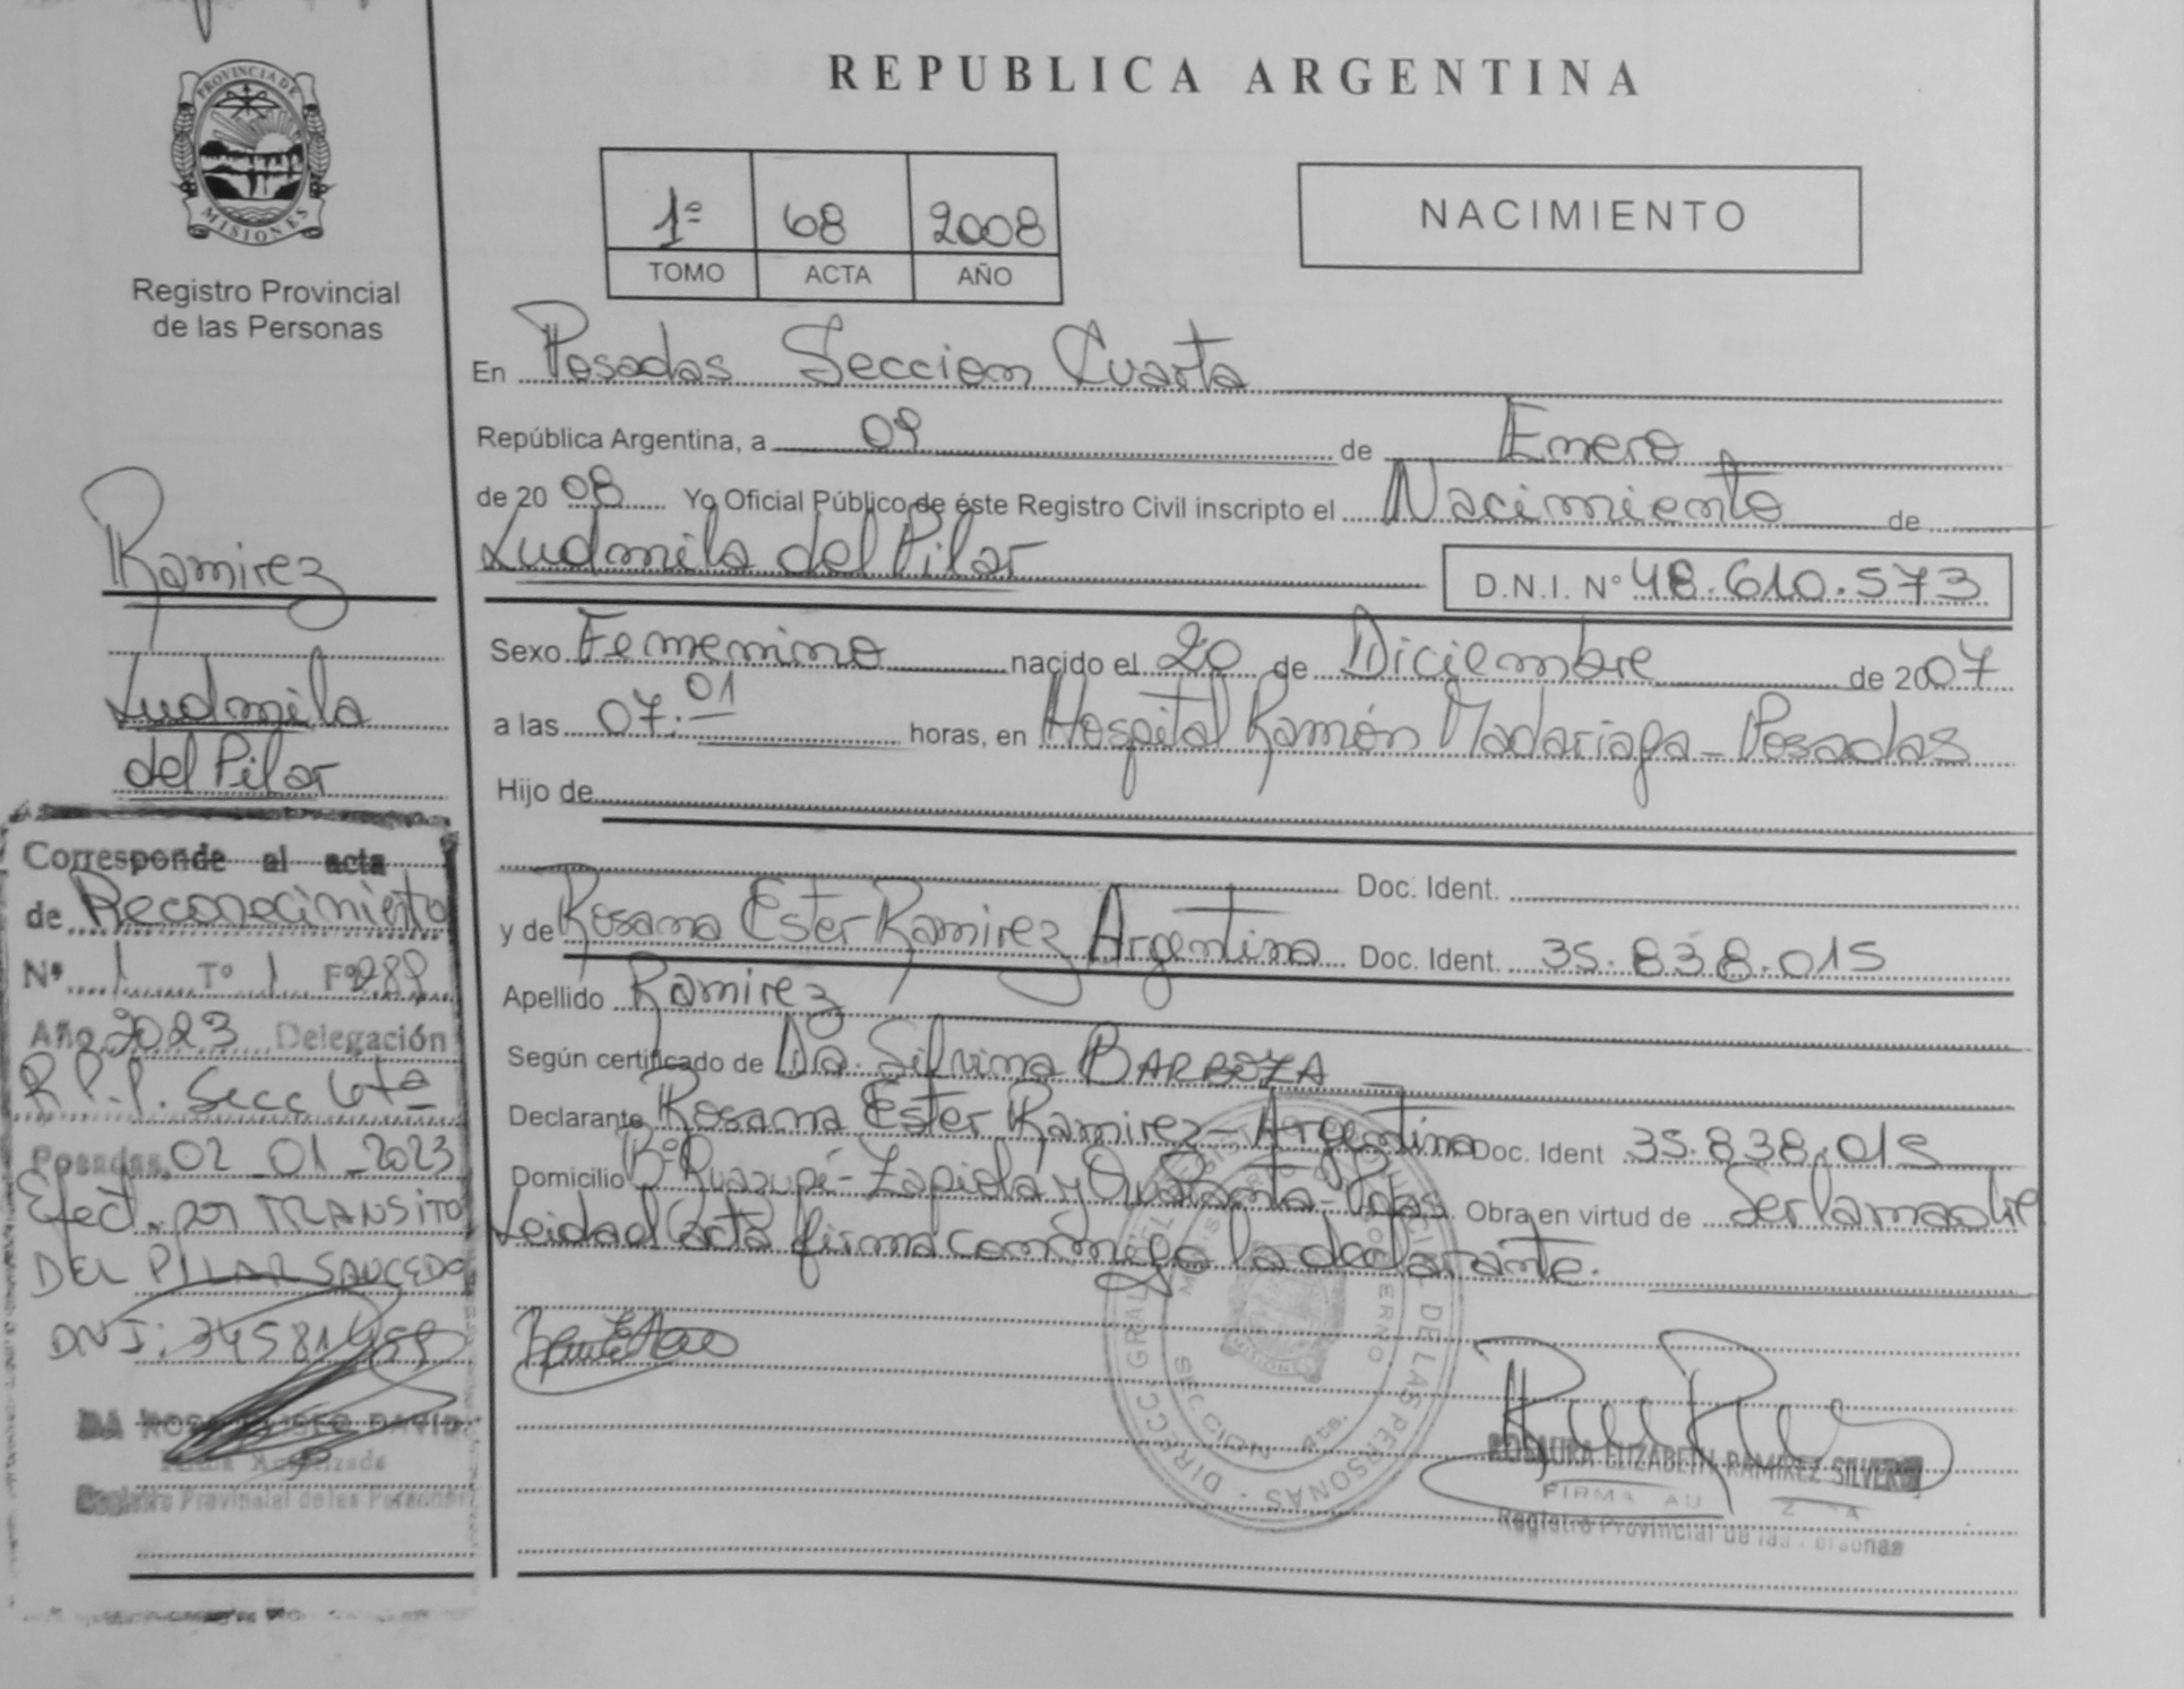 PROVINCIA DE
MISIONES
Registro Provincial
de las Personas
REPUBLICA ARGENTINA
1º 68 2008
TOMO ACTA AÑO
NACIMIENTO
En Posadas Seccion Cuarta
República Argentina, a 09 de Enero
de 20 08 Yo Oficial Público de éste Registro Civil inscripto el Nacimiento de
Ludmila del Pilar
D.N.I. Nº 48.610.573
Sexo Femenino nacido el 20 de Diciembre de 2007
a las 07.01 horas, en Hospital Ramón Madariaga - Posadas
Hijo de
Doc. Ident.
y de Rosana Ester Ramirez Argentina Doc. Ident. 35.838.015
Apellido Ramirez
Según certificado de Dra. Silvina BARBOZA
Declarante Rosana Ester Ramirez - Argentina Doc. Ident 35.838.015
Domicilio Bº - Zapiola y - Pdas. Obra en virtud de Ser la madre
Leida el acta firma conmigo la declarante.
ROSAURA ELIZABETH RAMIREZ
Registro Provincial de las Personas
Ramirez
Ludmila
del Pilar
Corresponde al acta
de Reconocimiento
Nº 1 Tº 1 Fº 289
Año 2023 Delegación
R.P.P. Secc 6ta
Posadas, 02-01-2023
Efect. por TRANSITO
DEL PILAR SAUCEDO
DNI:
DAVID
Registro Provincial de las Personas